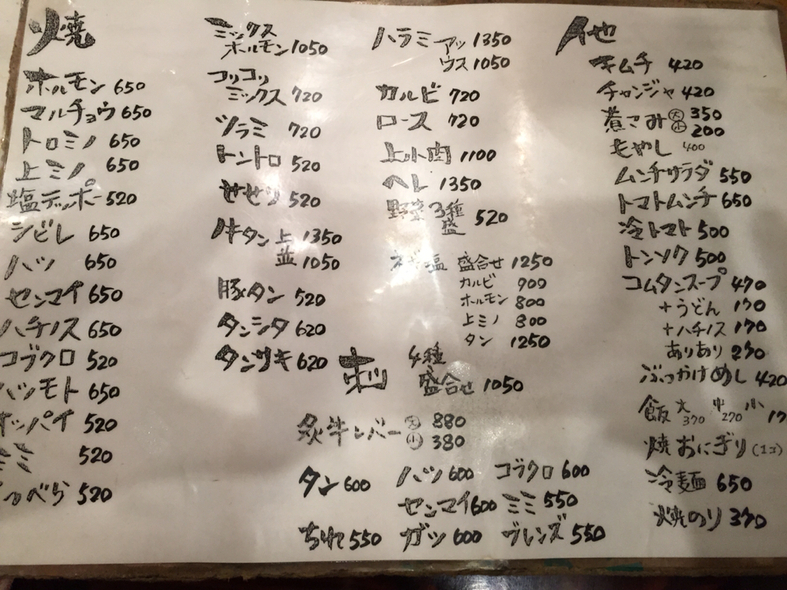 焼
ホルモン 650
マルチョウ 650
トロミノ 650
上ミノ 650
塩テッポー 520
シビレ 650
ハツ 650
センマイ 650
ハチノス 650
コブクロ 520
ハツモト 650
オッパイ 520
ミミ 520
520
ミックス
ホルモン 1050
コリコリ
ミックス 720
ツラミ 720
トントロ 520
せせり 520
牛タン 上 1350
並 1050
豚タン 520
タンシタ 620
タンサキ 620
ハラミ アツ 1350
ウス 1050
カルビ 720
ロース 720
上小肉 1100
ヘレ 1350
野菜3種
盛 520
ネギ塩 盛合せ 1250
カルビ 900
ホルモン 800
上ミノ 800
タン 1250
4種
盛合せ 1050
炙牛レバー 大 880
小 380
タン 600 ハツ 600 コブクロ 600
センマイ 600 ミミ 550
550 ガツ 600 ブレンズ 550
他
キムチ 420
チャンジャ 420
煮こみ 大 350
小 200
もやし 400
ムンチサラダ 550
トマトムンチ 650
冷トマト 500
トンソク 500
コムタンスープ 470
+うどん 170
+ハチノス 170
ありあり 270
ぶっかけめし 420
飯 大 370 中 270 小
焼おにぎり (1コ)
冷麺 650
焼のり 370